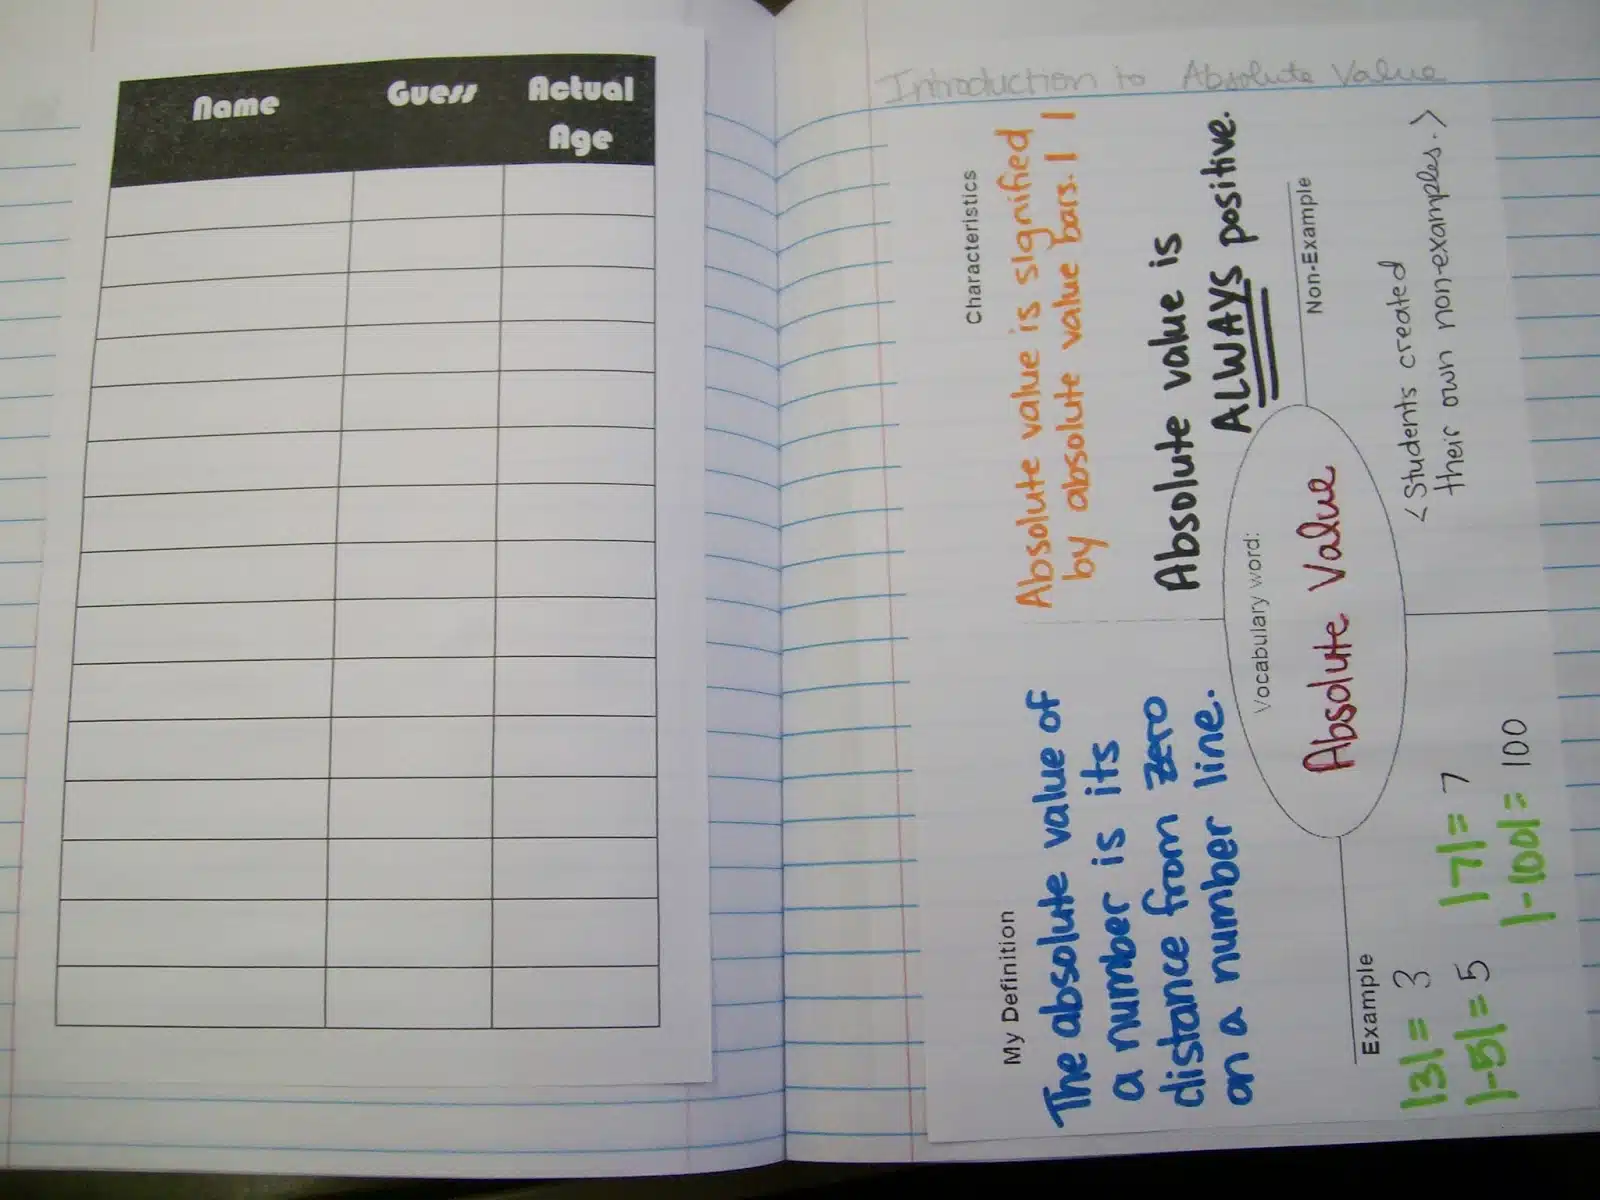 Name Guess Actual
Age
Introduction to Absolute Value
My Definition
The absolute value of
a number is its
distance from zero
on a number line.
Characteristics
Absolute value is signified
by absolute value bars. | |
Absolute value is
ALWAYS positive.
Vocabulary word:
Absolute Value
Example
|3| = 3
|-5| = 5
|7| = 7
|-100| = 100
Non-Example
< Students created
their own non-examples. >